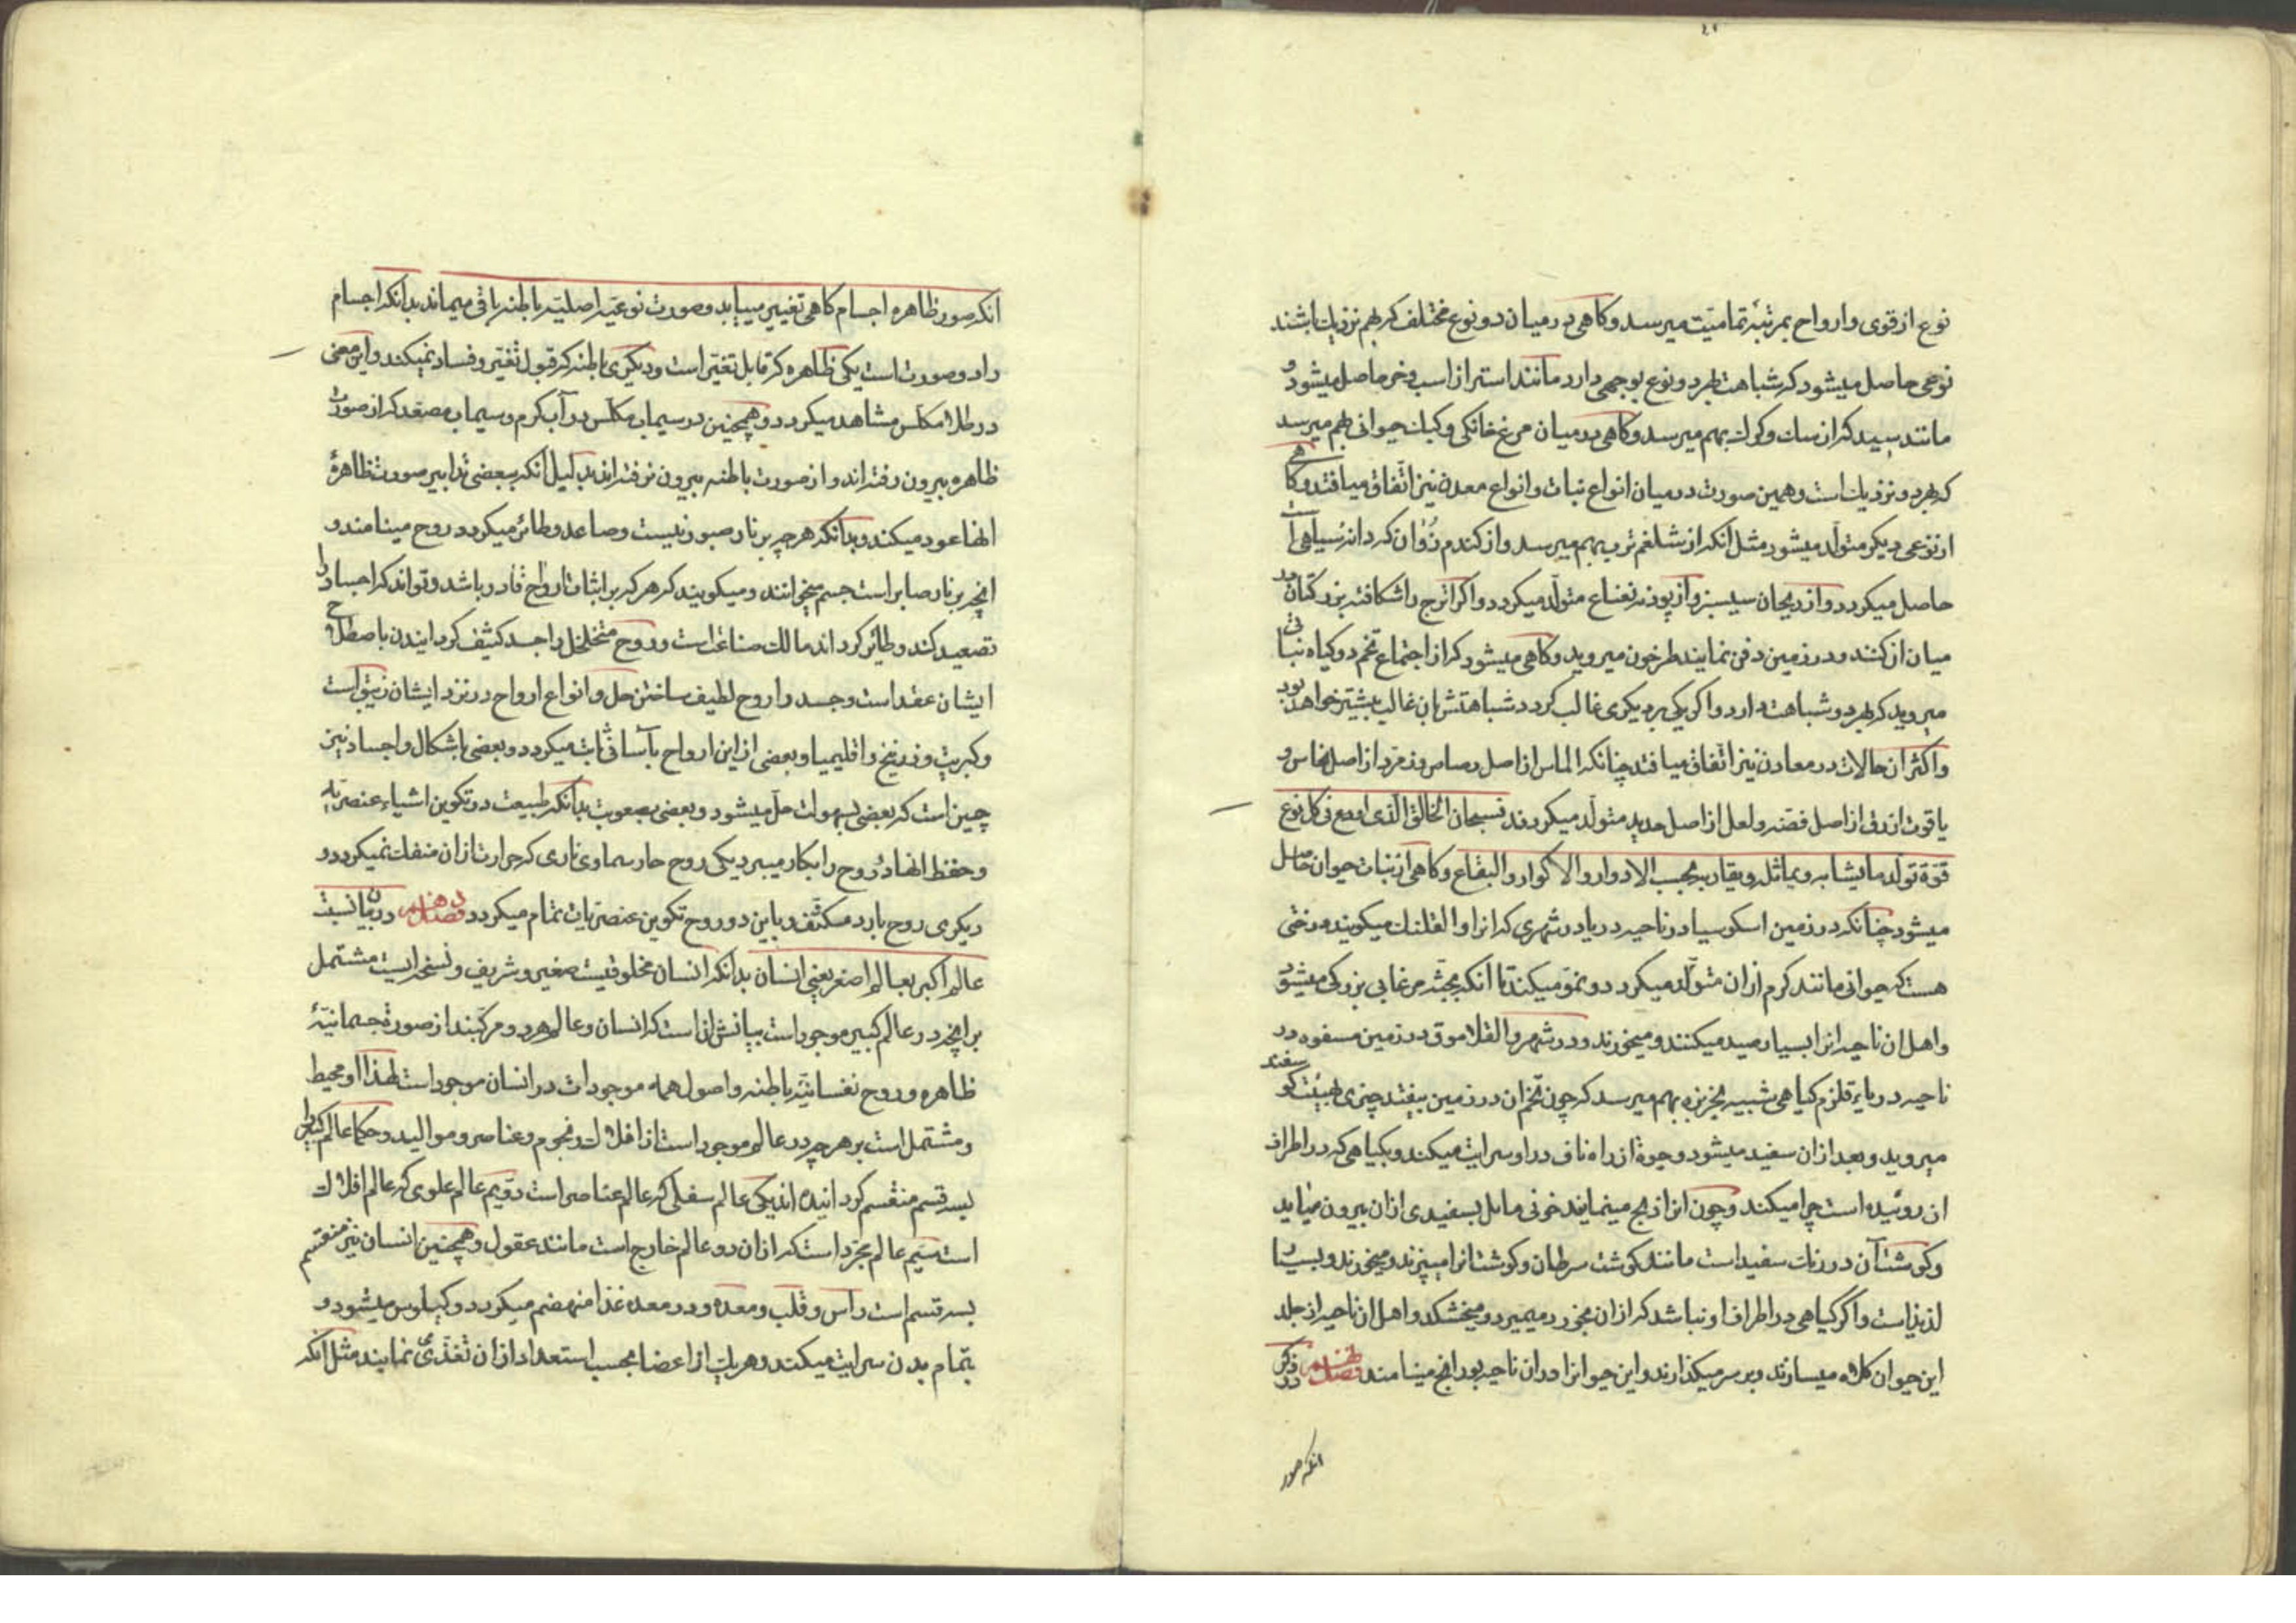 نوع از قوی و ارواح بمرتبهٔ تمامیّت میرسد و کاهی در میان دو نوع مختلف که بهم نزدیک باشند
نوعی حاصل میشود که شباهت بهر دو نوع بوجهی دارد مانند استر از اسب و خر حاصل میشود و
مانند سپید که از سک و کرک بهم میرسد و کاهی در میان مرغ خانکی و کبک حیوانی بهم میرسد
که بهر دو نزدیک است و همین صورت در میان انواع نبات و انواع معدن نیز اتّفاق میافتد و کاهی
از نوعی دیکر متولّد میشود مثل آنکه از شلغم ترب بهم میرسد و از کندم زُوان که دانهٔ سیاهی است
حاصل میکردد و از ریحان سیسنبر و از پودنه نعناع متولّد میکردد و اکر اترج را شکافته بزر کتان در
میان ان کنند و در زمین دفن نمایند طرخون میروید و کاهی میشود که از اجتماع تخم دو کیاه نباتی
میروید که بهر دو شباهت دارد و اکر یکی بر دیکری غالب کردد شباهتش بان غالب بیشتر خواهد بود
و اکثر ان حالات در معادن نیز اتّفاق میافتد چنانکه الماس از اصل رصاص و زمرّد از اصل نحاس و
یاقوت ازرق از اصل فضّه و لعل از اصل حدید متولّد میکردند فسبحان الخالق الّذی اودع فی کلّ نوع
قوّة تولّد ما یشابهه و یماثله و یقاربه بحسب الادوار و الاکوار و البقاع و کاهی از نبات حیوان حاصل
میشود چنانکه در زمین اسکوسیا در ناحیه دریا در شهری که انرا والقلنک میکویند درختی
هست که حیوانی مانند کرم از ان متولّد میکردد و نموّ میکند تا انکه بجثّه مرغابی بزرکی میشود
و اهل ان ناحیه انرا بسیار صید میکنند و میخورند و در شهر والقلاموق در زمین مسفوه در
ناحیه دریای قلزم کیاهی شبیه بخربزه بهم میرسد که چون تخم ان در زمین بیفتد چیزی بهیئت کوسفند
میروید و بعد از ان سفید میشود و حیوة از راه ناف در او سرایت میکند و بکیاهی که در اطراف
ان روئیده است چرا میکند و چون انرا ذبح مینمایند خونی مایل بسفیدی از ان بیرون میاید
و کوشت آن در رنک سفید است مانند کوشت سرطان و کوشت انرا میپزند و میخورند و بسیار
لذیذ است و اکر کیاهی در اطراف او نباشد که از ان بخورد میمیرد و میخشکد و اهل ان ناحیه از جلد
این حیوان کلاه میسازند و بر سر میکذارند و این حیوانرا در ان ناحیه بورانج مینامند فصل نهم در ذکر
انکه صور
انکه صور ظاهره اجسام کاهی تغییر مییابد و صورت نوعیّه اصلیّه باطنه باقی میماند بدانکه اجسام
را دو صورت است یکی ظاهره که قابل تغیّر است و دیکری باطنه که قبول تغیّر و فساد نمیکند و این معنی
در طلاء مکلّس مشاهده میکردد و همچنین در سیماب مکلّس در آب کرم و سیماب مصعّد که از صورت
ظاهره بیرون رفته‌اند و از صورت باطنه بیرون نرفته‌اند بدلیل انکه ببعضی تدابیر صورت ظاهرهٔ
انها عود میکند و بدانکه هر چه بر نار صبور نیست و صاعد و طائر میکردد روح مینامند و
انچه بر نار صابر است جسم میخوانند و میکویند که هر که بر اثبات ارواح قادر باشد و تواند که اجساد را
تصعید کند و طائر کرداند مالک صناعت است و روح متخلخل را جسد کثیف کردانیدن باصطلاح
ایشان عقد است و جسد را روح لطیف ساختن حلّ و انواع ارواح در نزد ایشان زیبق است
و کبریت و زرنیخ و اقلیمیا و بعضی از این ارواح بآسانی ثابت میکردد و بعضی باشکال و اجساد نیز
چنین است که بعضی بسهولت حلّ میشود و بعضی بصعوبت بدانکه طبیعت در تکوین اشیاء عنصریّه
و حفظ انها دو روح را بکار میبرد یکی روح حار سماوی ناری که حرارت از ان منفک نمیکردد و
دیکری روح بارد مکثّف و باین دو روح تکوین عنصریات تمام میکردد فصل دهم در بیان نسبت
عالم اکبر بعالم اصغر یعنی انسان بدانکه انسان مخلوقیست صغیر و شریف و نسخه ایست مشتمل
بر انچه در عالم کبیر موجود است بیانش ان است که انسان و عالم هر دو مرکّبند از صورة جسمانیّهٔ
ظاهره و روح نفسانیّه باطنه و اصول همه موجودات در انسان موجود است لهذا او محیط
و مشتمل است بر هر چه در عالم موجود است از افلاک و نجوم و عناصر و موالید و حکما عالم کبیر را
بسه قسم منقسم کردانیده‌اند یکی عالم سفلی که عالم عناصر است دوّیم عالم علوی که عالم افلاک
است سیّم عالم مجرّد است که از ان دو عالم خارج است مانند عقول و همچنین انسان نیز منقسم
بسه قسم است راس و قلب و معده و در معده غذا منهضم میکردد و کیلوس میشود و
بتمام بدن سرایت میکند و هر یک از اعضا بحسب استعداد از ان تغذّی نمایند مثل انکه